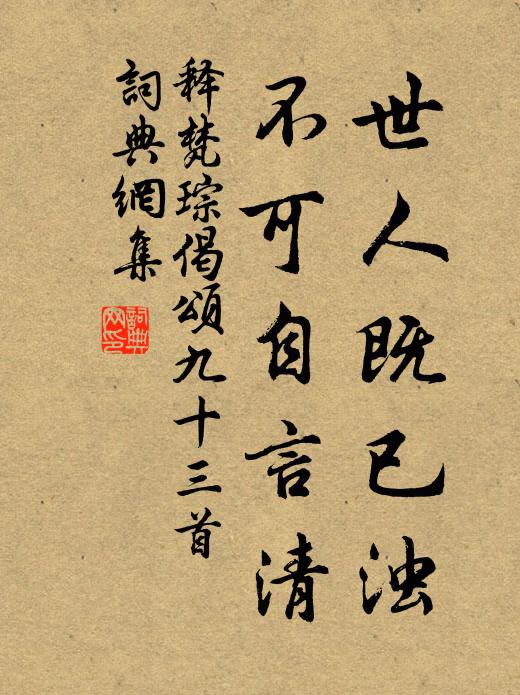 世人既已浊
不可自言清
释梵琮偈颂九十三首
詞典網集
詞典网印